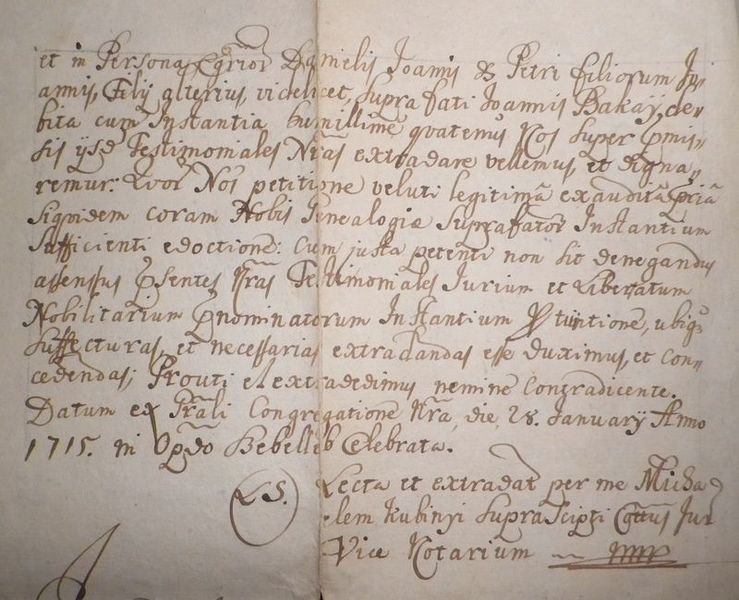 et in Persona Egrior Danielis Joannis & Petri filiorum Jo„
annis, Filij alterius, videlicet, suprafati Joannis Bakay, de„
bita cum Instantia humillime quatenus Nos super pmis„
sis ijsd Testimoniales Nras extradare vellemus, et digna„
remur: Quor Nos petitione veluti legitima exaudita, pria
Siqvidem coram Nobis Genealogiæ Suprafator Instantium
Sufficienti edoctione: cum justa petenti non sit denegandus
assensus psentes Nras Testimoniales Jurium et Libertatum
Nobilitarium pnominatorum Instantium p tuitione, ubiqz
Suffecturas, et necessarias extradandas esse duximus, et con„
cedendas; Prouti et extradedimus nemine Contradicente.
Datum ex Gnrali Congregatione Nra, die, 28. January Anno
1715. in Oppdo Bebelleb Celebrata.
L.S. Lecta et extradat per me Micha
elem Kubinyi supraScipti Cottus Jur
Vice Notarium